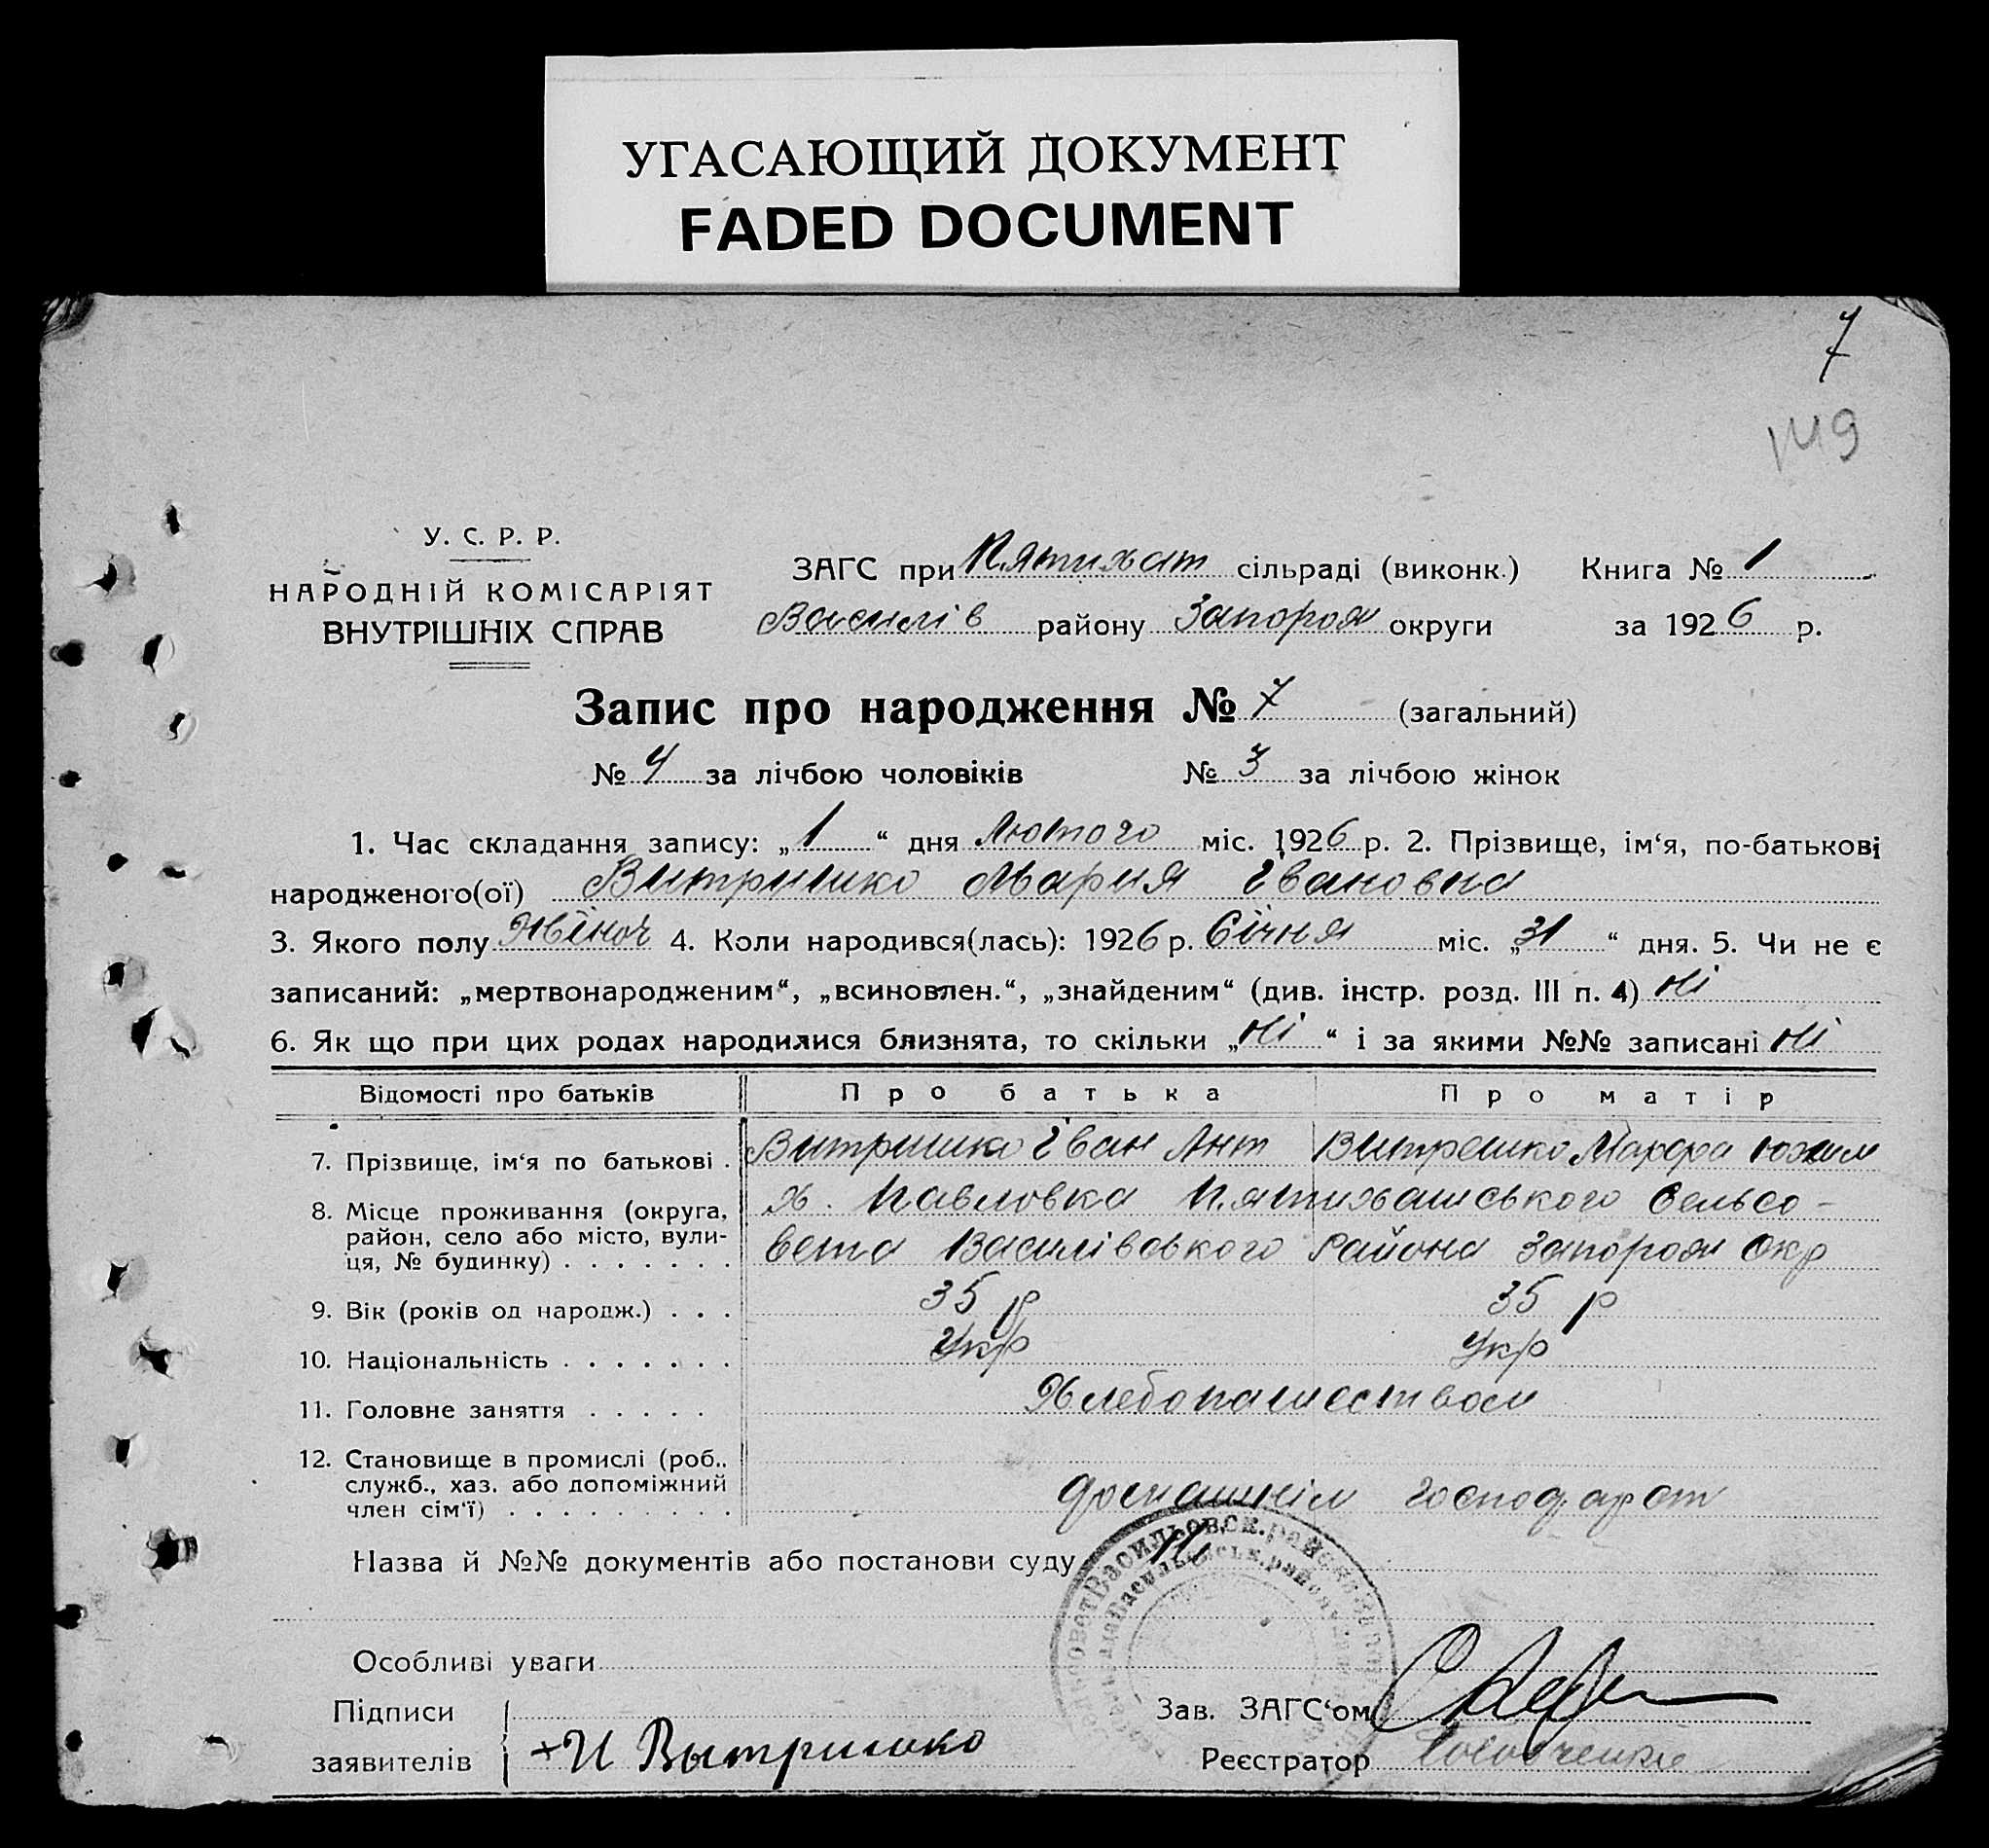 УГАСАЮЩИЙ ДОКУМЕНТ
FADED DOCUMENT
7
149
У. С. Р. Р.
НАРОДНІЙ КОМІСАРІЯТ
ВНУТРІШНІХ СПРАВ
ЗАГС при Пятихат сільраді (виконк.) Книга № 1
Василів району Запорож округи за 1926 р.
Запис про народження № 7 (загальний)
№ 4 за лічбою чоловіків № 3 за лічбою жінок
1. Час складання запису: „1“ дня Лютого міс. 1926 р. 2. Прізвище, ім‘я, по-батькові
народженого(ої) Витришко Мария Івановна
3. Якого полу Жіноч 4. Коли народився(лась): 1926 р. Січня міс. „31“ дня. 5. Чи не є
записаний: „мертвонародженим“, „всиновлен.“, „знайденим“ (див. інстр. розд. III п. 4) Ні
6. Як що при цих родах народилися близнята, то скільки „Ні“ і за якими №№ записані Ні
Відомості про батьків Про батька Про матір
7. Прізвище, ім‘я по батькові . Витришко Іван Ант Витрешко Марфа
8. Місце проживання (округа, х. Павловка Пятихатського Сельсо-
район, село або місто, вули-
ця, № будинку) . . . . . . . вета Василівського Района Запорож Окр
9. Вік (років од народж.) . . . 35 р 35 р
10. Національність . . . . . . . Укр Укр
11. Головне заняття . . . . . Хлебопашеством
12. Становище в промислі (роб..
служб., хаз. або допоміжний
член сім‘ї) . . . . . . . . . . домашнім господарст
Назва й №№ документів або постанови суду
Особливі уваги
Підписи
заявителів + И Вытришко
Зав. ЗАГС‘ом
Реєстратор